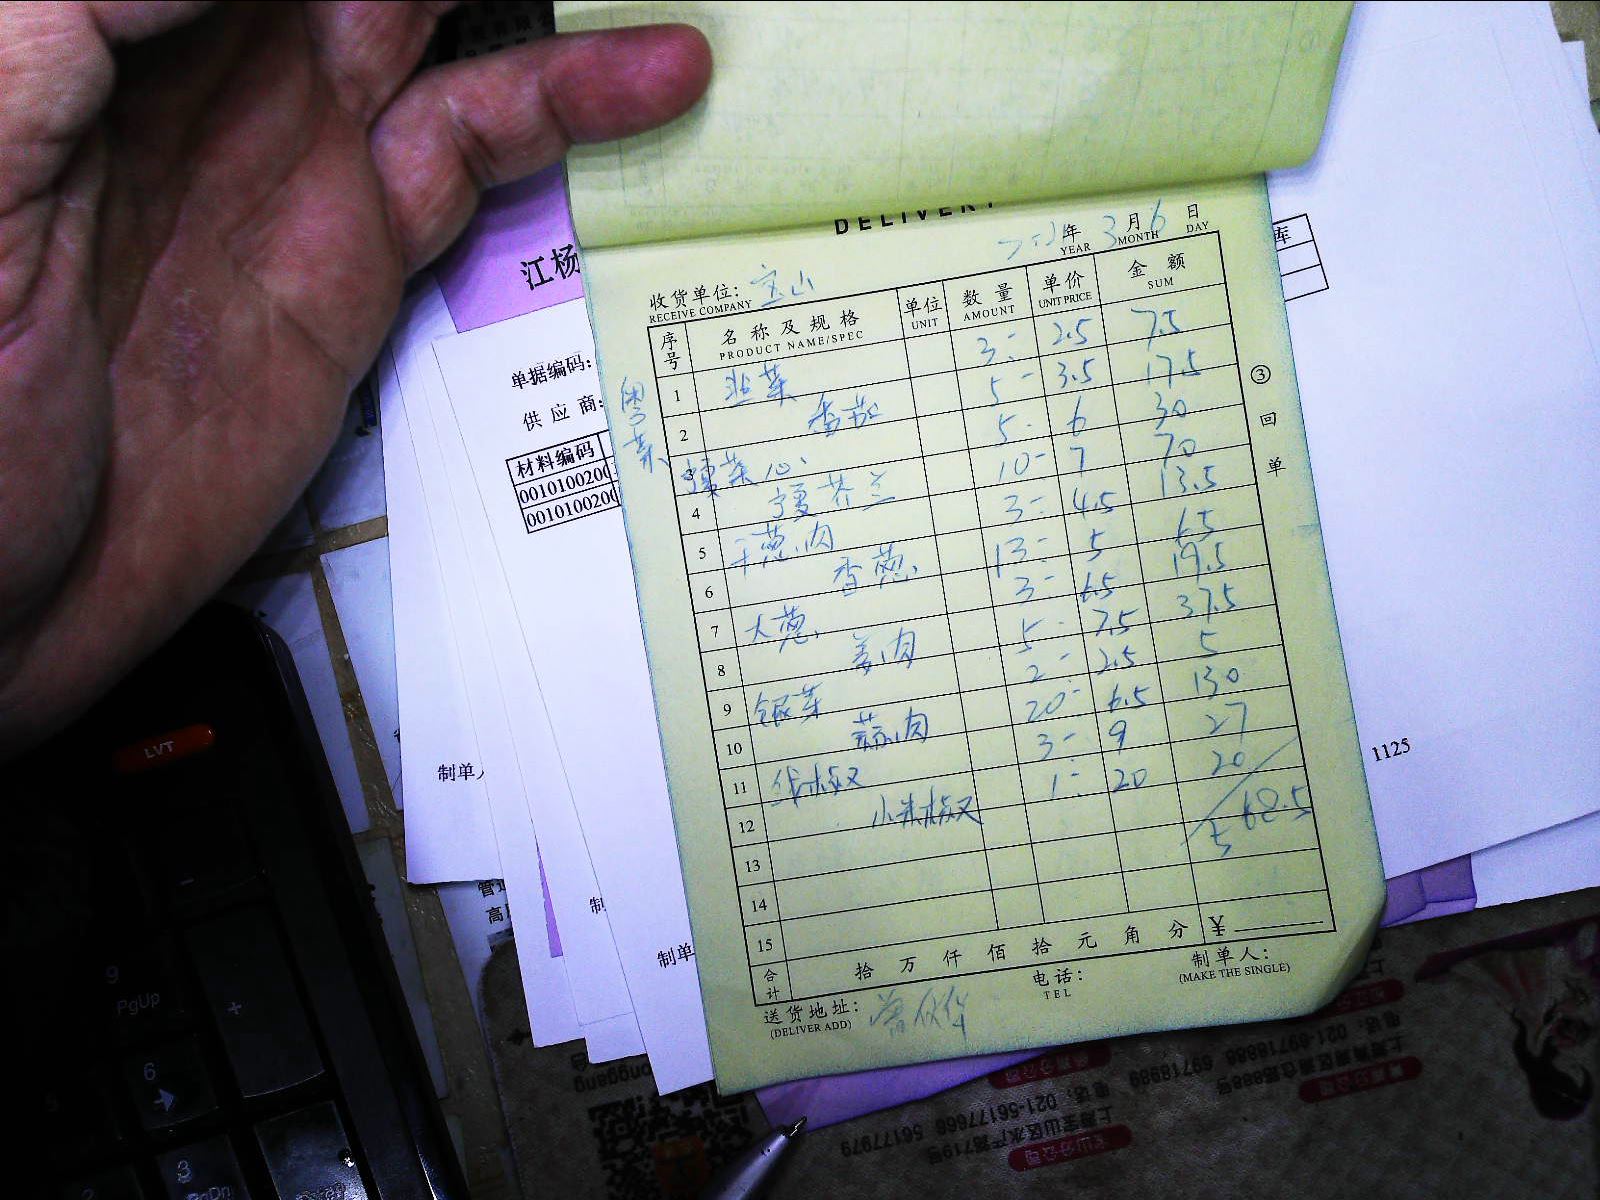 DELIVERY
2021年3月6日
YEAR MONTH DAY
收货单位: 宝山
RECEIVE COMPANY
序号 名称及规格 单位 数量 单价 金额
PRODUCT NAME/SPEC UNIT AMOUNT UNIT PRICE SUM
粤菜
1 韭菜 3- 2.5 7.5
2 番茄 5- 3.5 17.5
3 宁夏菜心 5- 6 30
4 宁夏芥兰 10- 7 70
5 干葱肉 3- 4.5 13.5
6 香葱 13- 5 65
7 大葱 3- 6.5 19.5
8 姜肉 5- 7.5 37.5
9 银芽 2- 2.5 5
10 蒜肉 20- 6.5 130
11 线椒 3- 9 27
12 小米椒 1- 20 20
13
14
15
合计 拾 万 仟 佰 拾 元 角 分 ¥
送货地址:
(DELIVER ADD)
电话:
TEL
制单人:
(MAKE THE SINGLE)
③回单
江杨
单据编码:
供应商:
材料编码
0010100200
0010100200
库
制单人
制单
1125
LVT
9
PgUp
+
6
3
PgDn
021-56177666 56177979
上海宝山区水产路719号
宝山分公司
021-69718888 69718989